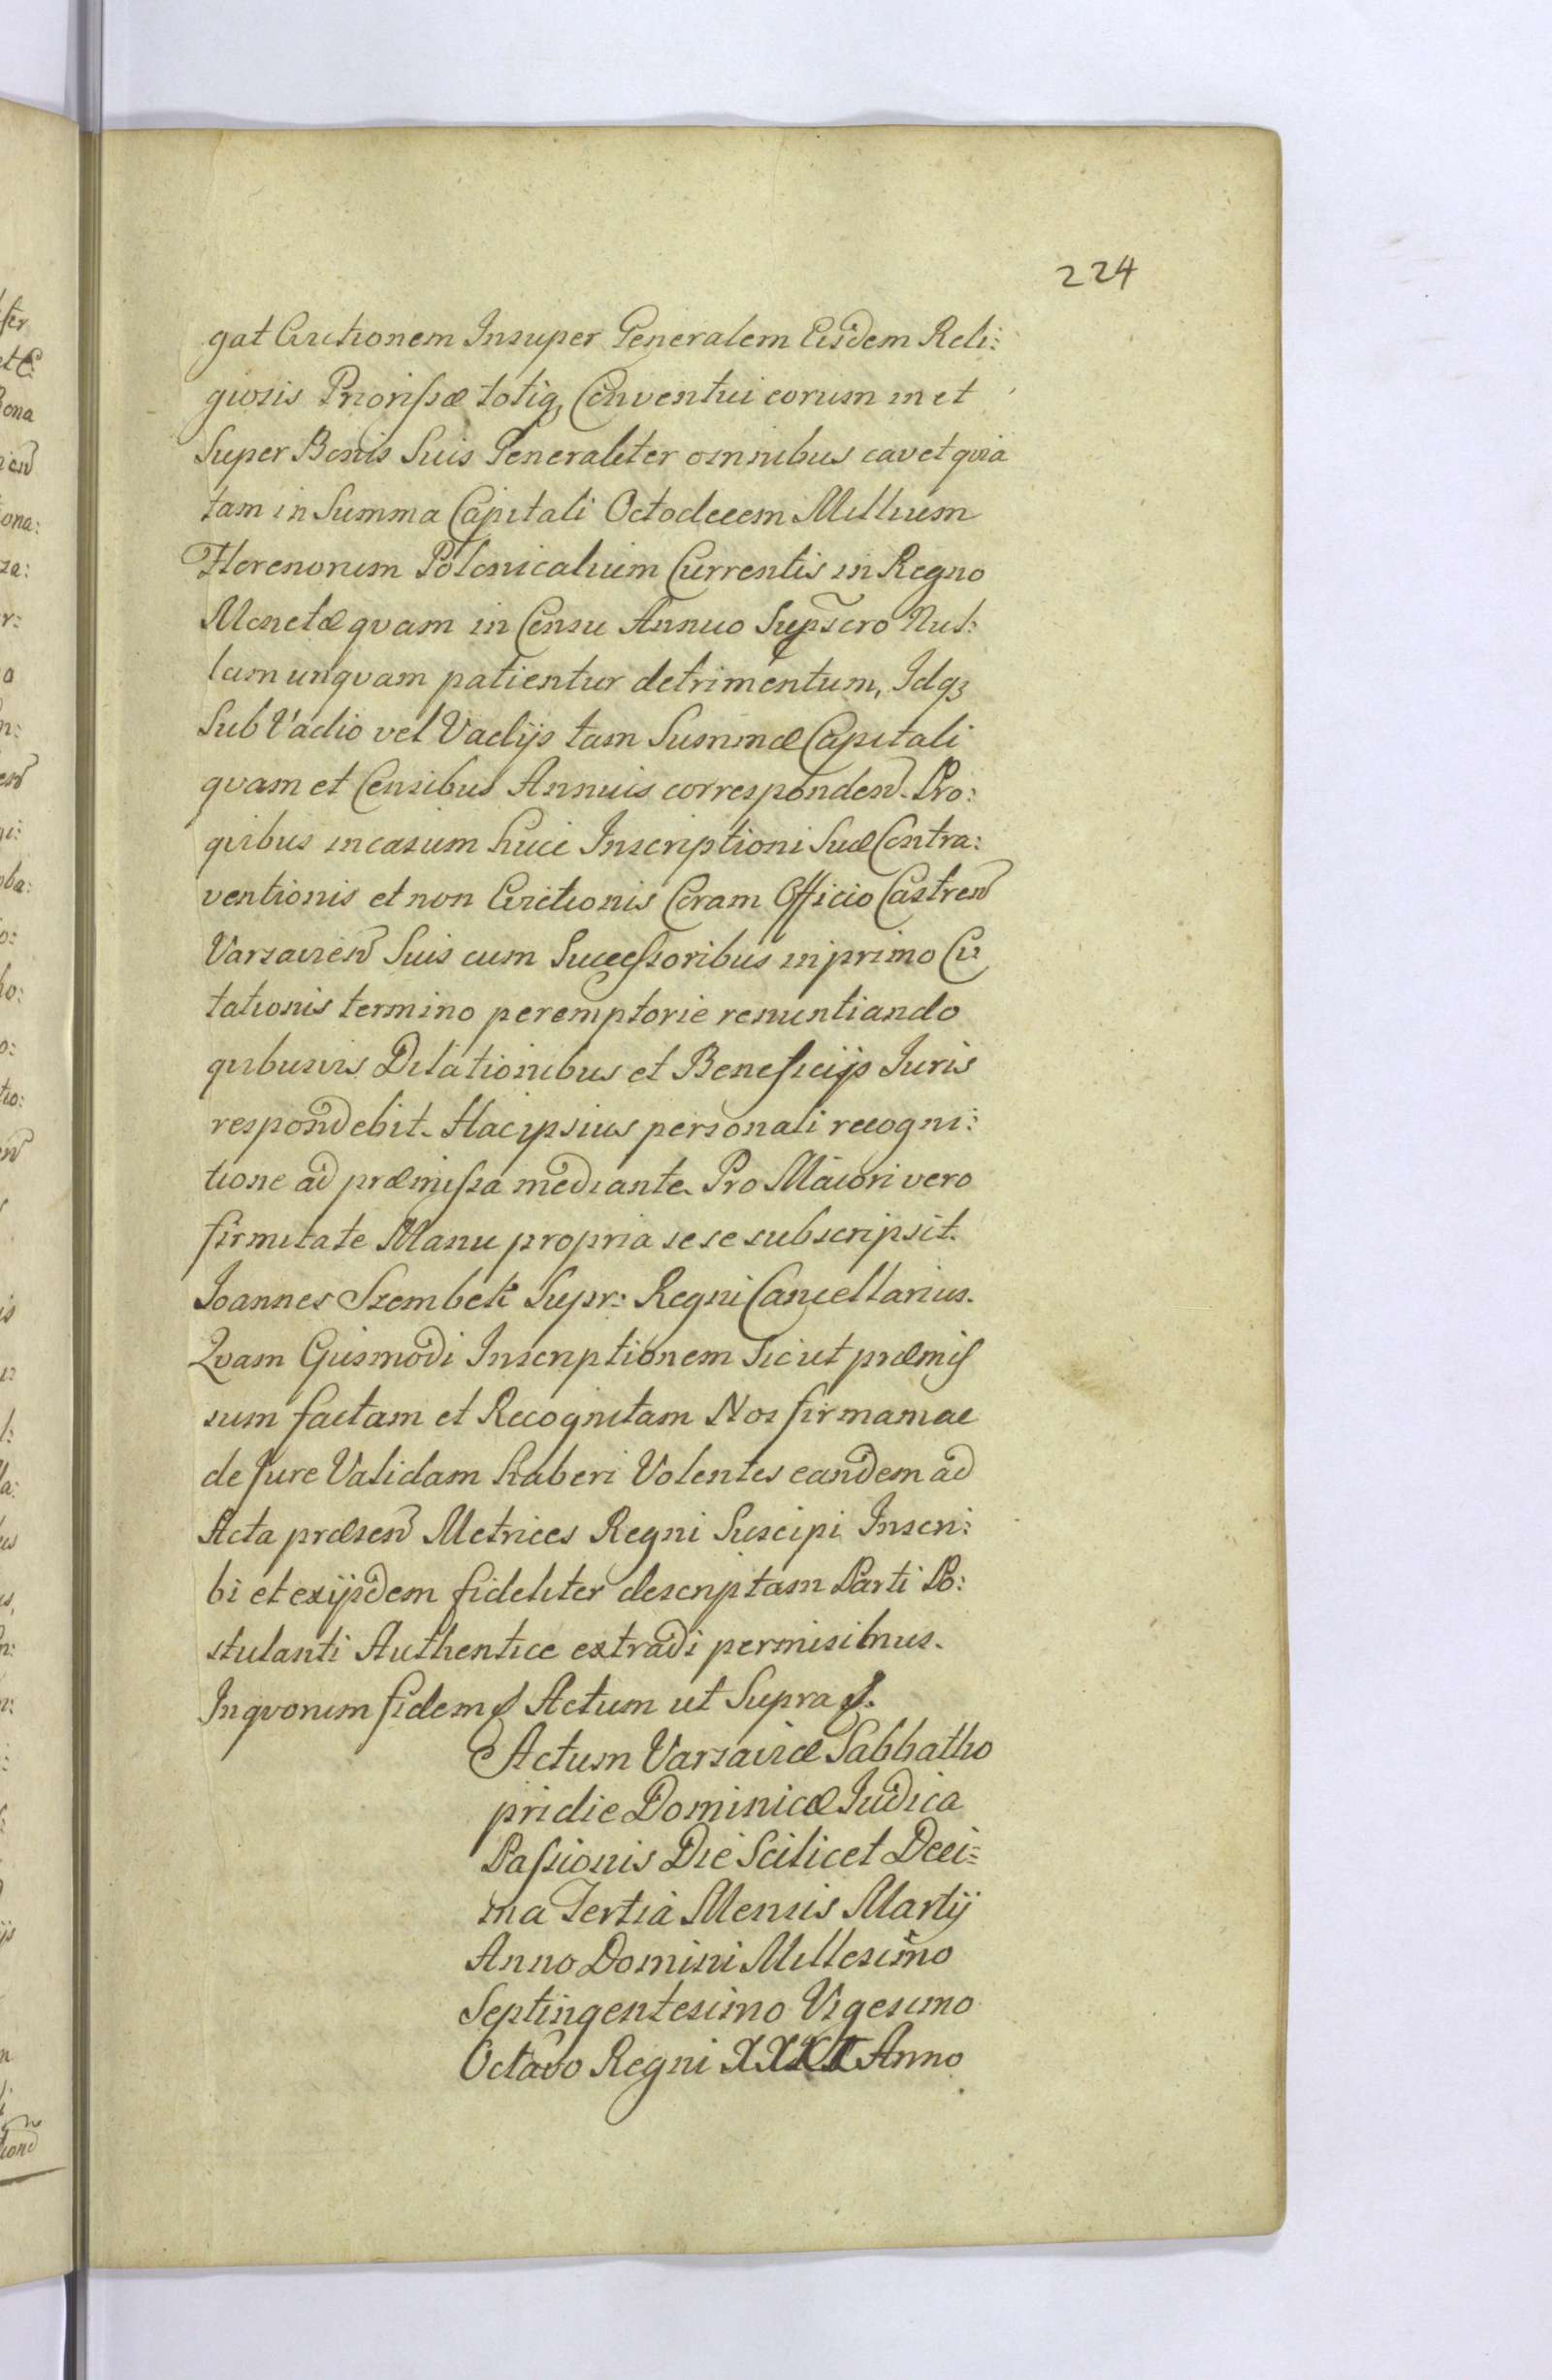 224
gat Evictionem Insuper Generalem Eisdem Reli:
giosis Priorissæ totiq, Conventui eorum met
Super Bonis Suis Generaliter omnibus cavet quia
tam in Summa Capitali Octodecem Millium
Florenorum Polonicalium Currentis in Regno
Monetæ quam in Censu Annuo Nul:
lum unquam patientur detrimentum, Idq3
Sub Vadio vel Vadijs tam Summæ Capitali
quam et Censibus Annuis correspondeñ. Pro:
quibus in casum huic Inscriptioni Suæ Contra:
ventionis et non Evictionis Coram Officio Castreñ
Varsavieñ Suis cum Successoribus in primo Ci
tationis termino peremptorie renuntiando
quibusvis Dilationibus et Beneficijs Juris
respondebit. Hac ipsius personali recogni:
tione ad præmissa mediante. Pro Maiori vero
firmitate Manu propria sese subscripsit.
Joannes Szembek Supr: Regni Cancellarius.
Qvam Ejusmodi Inscriptionem Sicut præmis
sum factam et Recognitam Nos firmam ac
de Jure Validam haberi Volentes eandem ad
Acta præseñ Metrices Regni Suscipi Inscri:
bi et ex ijsdem fideliter descriptam Parti Po:
stulanti Authentice extradi permisimus.
In quorum fidem Actum ut Supra
Actum Varsaviæ Sabbatho
pridie Dominicæ Judica
Passionis Die Scilicet Deci=
ma Tertia Mensis Martij
Anno Domini Millesimo
Septingentesimo Vigesimo
Octavo Regni XXXI Anno